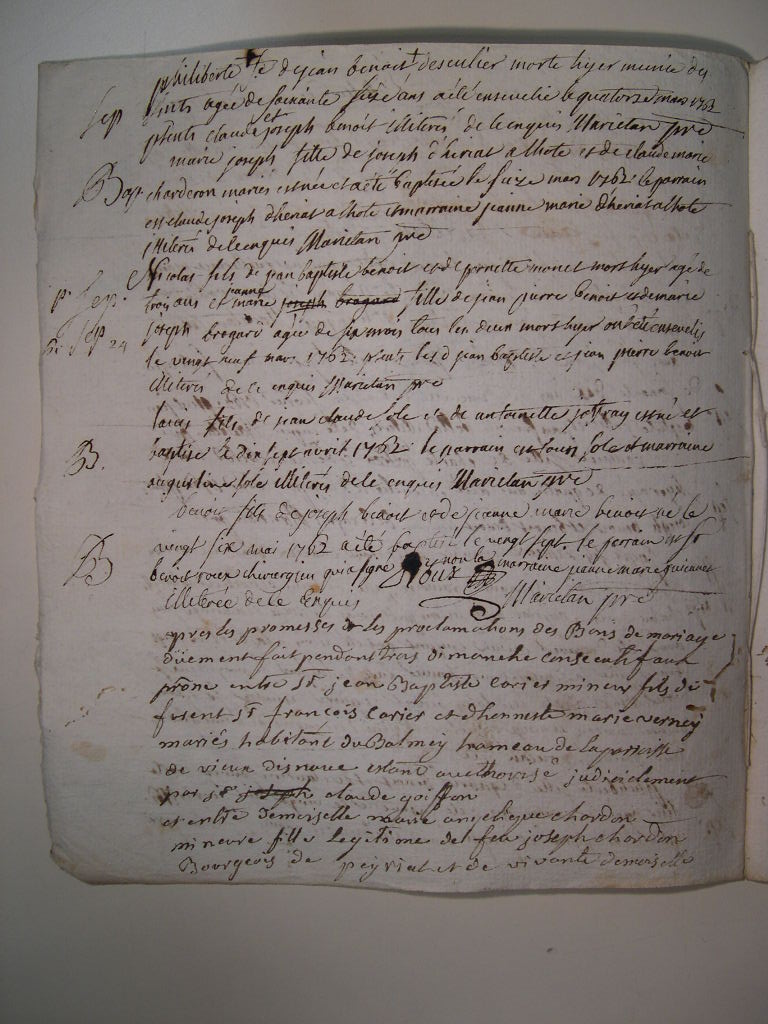 philiberte fe de jean benoit desculier morte hyer munie des
Sep
agée de soixante seize ans a été ensevelie le quatorze mars 1762
pnts claude et joseph benoit illiterés de ce enquis Marietan pre
marie joseph fille de joseph alhote et de claude marie
Bapt charderon mariés est née et a été baptisée le seize mars 1762 le parrain
est claude joseph alhote et marraine jeanne marie alhote
illiterés de ce enquis Marietan pre
Nicolas fils de jean baptiste benoit et de pernette monet mort hyer agé de
pr Sep. trois ans et jeanne marie joseph brogard fille de jean pierre benoit et de marie
Sep 24 joseph brogard agée de six mois tous les deux morts hyer ont été ensevelis
le vingt neuf mars 1762: pnts les d jean baptiste et jean pierre benoit
illiterés de ce enquis Marietan pre
louis fils de jean claude sole et de antoinette joffray est né et
B. baptisé le dix sept avril 1762: le parrain est louis sole et marraine
augustine sole illiterés de ce enquis Marietan pre
benoit fils de joseph benoit et de jeanne marie benoit né le
B vingt six mai 1762 a été baptisé le vingt sept. le parrain est
benoit roux chirurgien qui a signé non la marraine jeanne marie
Roux
illiterée de ce Enquis Marietan pre
apres les promesses et les proclamations des Bans de mariage
düement fait pendant trois dimanche consecutif aux
prône entre Sr jean Baptiste Carier mineur fils de
fusent Sr françois Carier et d'honneste marie verney
mariés habitant du Balmey hameau de la parroisse
de vieux disnave estant aucthorisé judiciclement
par Sr joseph claude goiffon
et entre demoiselle marie angelique chardon
mineure fille legitime de feu joseph chardon
Bourgeois de peyriat et de vivante demoiselle